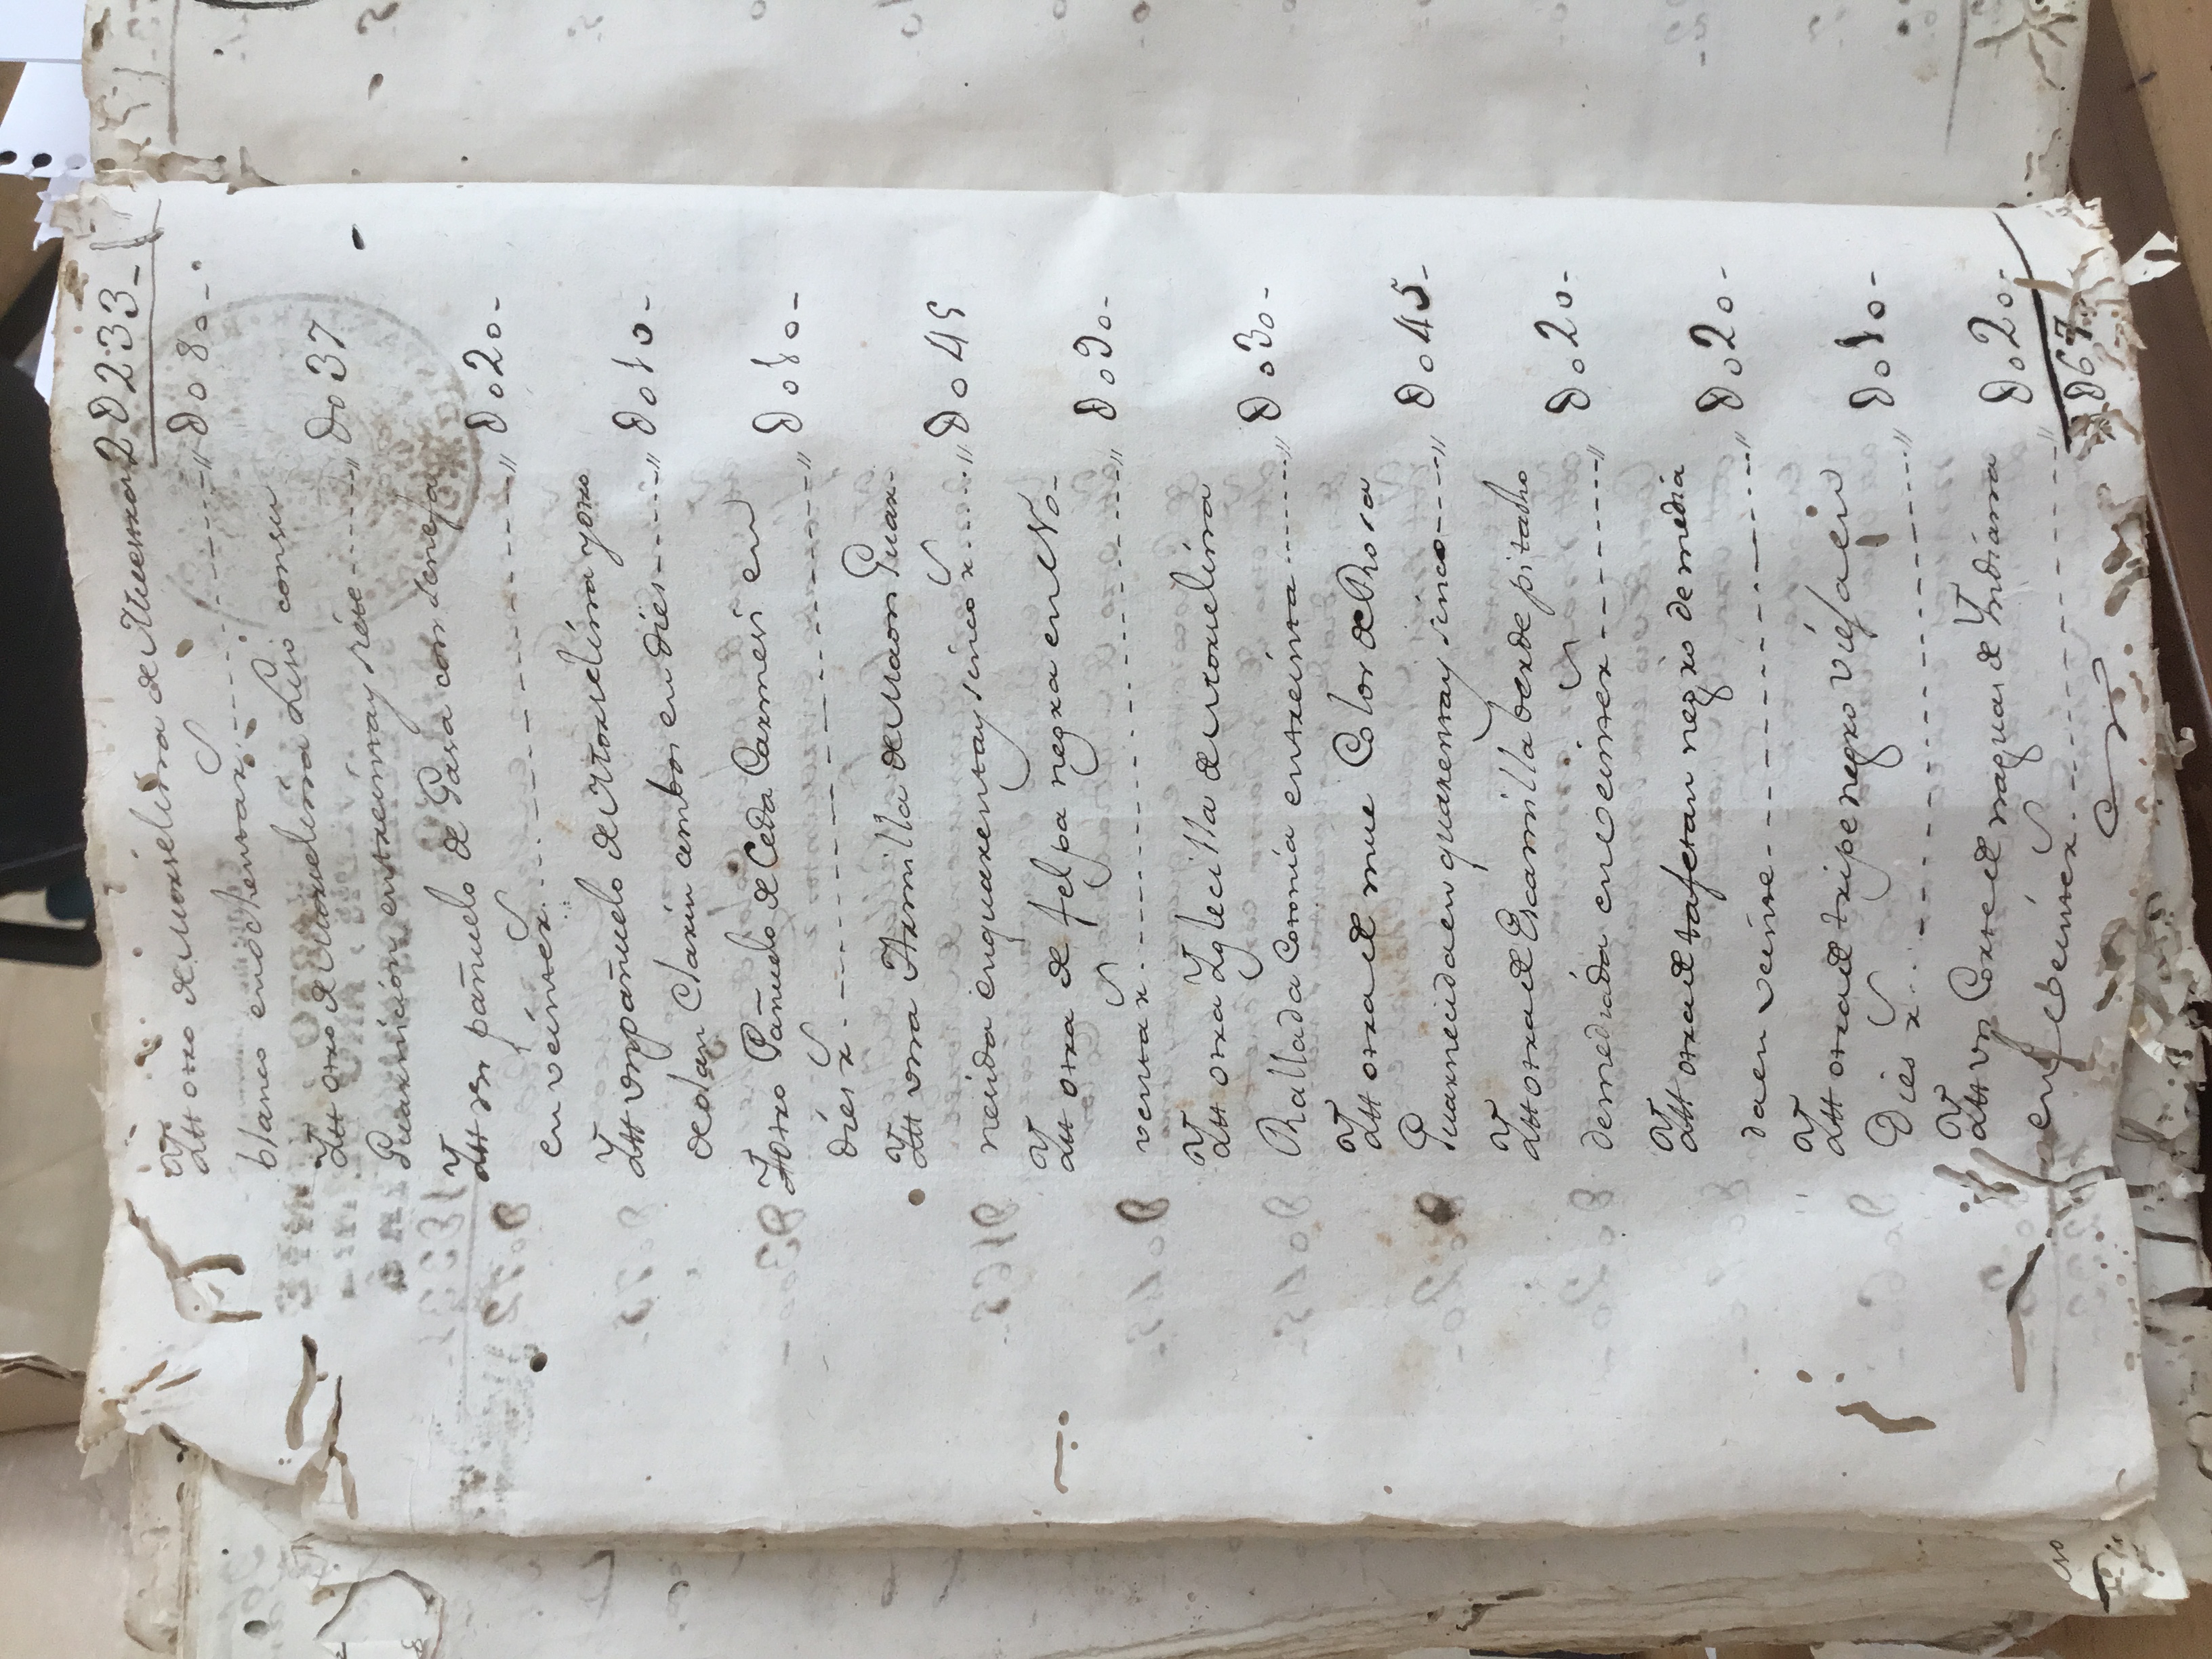 2 D233
Ytt otro de Muselina de Muestra
blanco en ochenta rx. D080
Ytt otro de Muselina Liso con su
Guarnicion en treinta y siete D037
Ytt un pañuelo de Gasa con senefa
en veinte rx. D020
Ytt un pañuelo de Moselina y otro
de olan Clarin ambos en dies D010
Y otro Pañuelo de Ceda Carmesi en
dies rx. D010
Ytt una Armilla de Maon Guar-
neida en quarenta y sinco rx. D045
Ytt otra de felpa negra en No-
venta rx. D090
Ytt otra Yglecilla de Moselina
Rallada Comnia en treinta D030
Ytt otra de mue Color de Rosa
Guarneida en quarenta y sinco D045
Ytt otra de Escamilla berde pitasho
demediada en veinte rx D020
Ytt otra de tafetan negro demedia
da en veinte D020
Ytt otra de tripe negro viefa en
Dies rx. D010
Ytt un Corte de naguas de Yndiana
en veinte rx. D020
D67